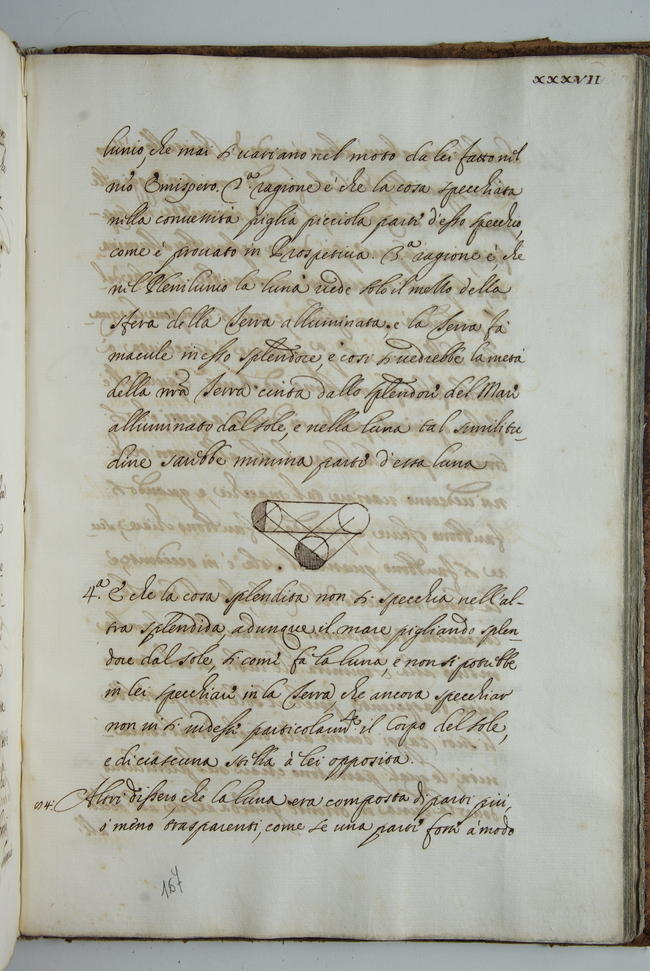 XXXVII
lunio, che mai si variano nel moto da lei fatto nel
nrõ Emispero. 2.ª ragione è che la cosa specchiata
nella convessità piglia picciola parte d'esso specchio,
come è provato in Prospetiva. 3.ª ragione è che
nel Plenilunio la luna vede solo il mezzo della
sfera della Terra alluminata. e la Terra fa
macule in esso splendore, e così si vedrebbe la metà
della nrã Terra cinta dallo splendore del Mare
alluminato dal sole, e nella luna tal similitu-
dine sarebbe minima parte d'essa luna
4.ª È che la cosa splendida non si specchia nell'al-
tra splendida adunque il mare pigliando splen-
dore dal sole, si come fa la luna, e non si potrebbe
in lei specchiare in la Terra, che ancora specchiar
non vi si vedesse particolarm.te il Corpo del sole,
e di ciascuna stella à lei opposita.
Altri dissero che la luna era composta di parti più,
ò meno trasparenti, come se una parte fosse à modo
167